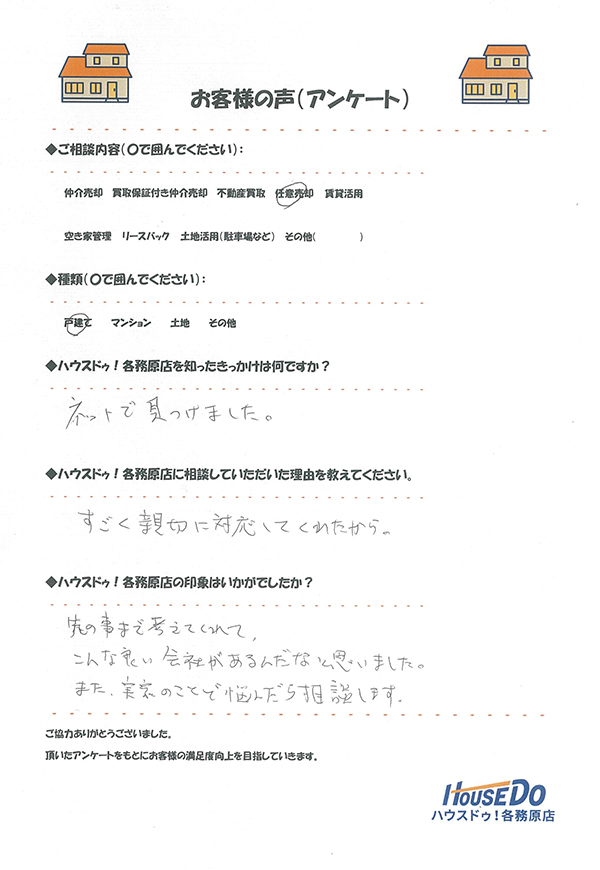 お客様の声(アンケート)
◆ご相談内容(〇で囲んでください):
仲介売却 買取保証付き仲介売却 不動産買取 任意売却 賃貸活用
空き家管理 リースバック 土地活用(駐車場など) その他( )
◆種類(〇で囲んでください):
戸建て マンション 土地 その他
◆ハウスドゥ!各務原店を知ったきっかけは何ですか?
ネットで見つけました。
◆ハウスドゥ!各務原店に相談していただいた理由を教えてください。
すごく親切に対応してくれたから。
◆ハウスドゥ!各務原店の印象はいかがでしたか?
先の事まで考えてくれて、
こんな良い会社があるんだなと思いました。
また、実家のことで悩んだら相談します。
ご協力ありがとうございました。
頂いたアンケートをもとにお客様の満足度向上を目指していきます。
HOUSEDO
ハウスドゥ!各務原店